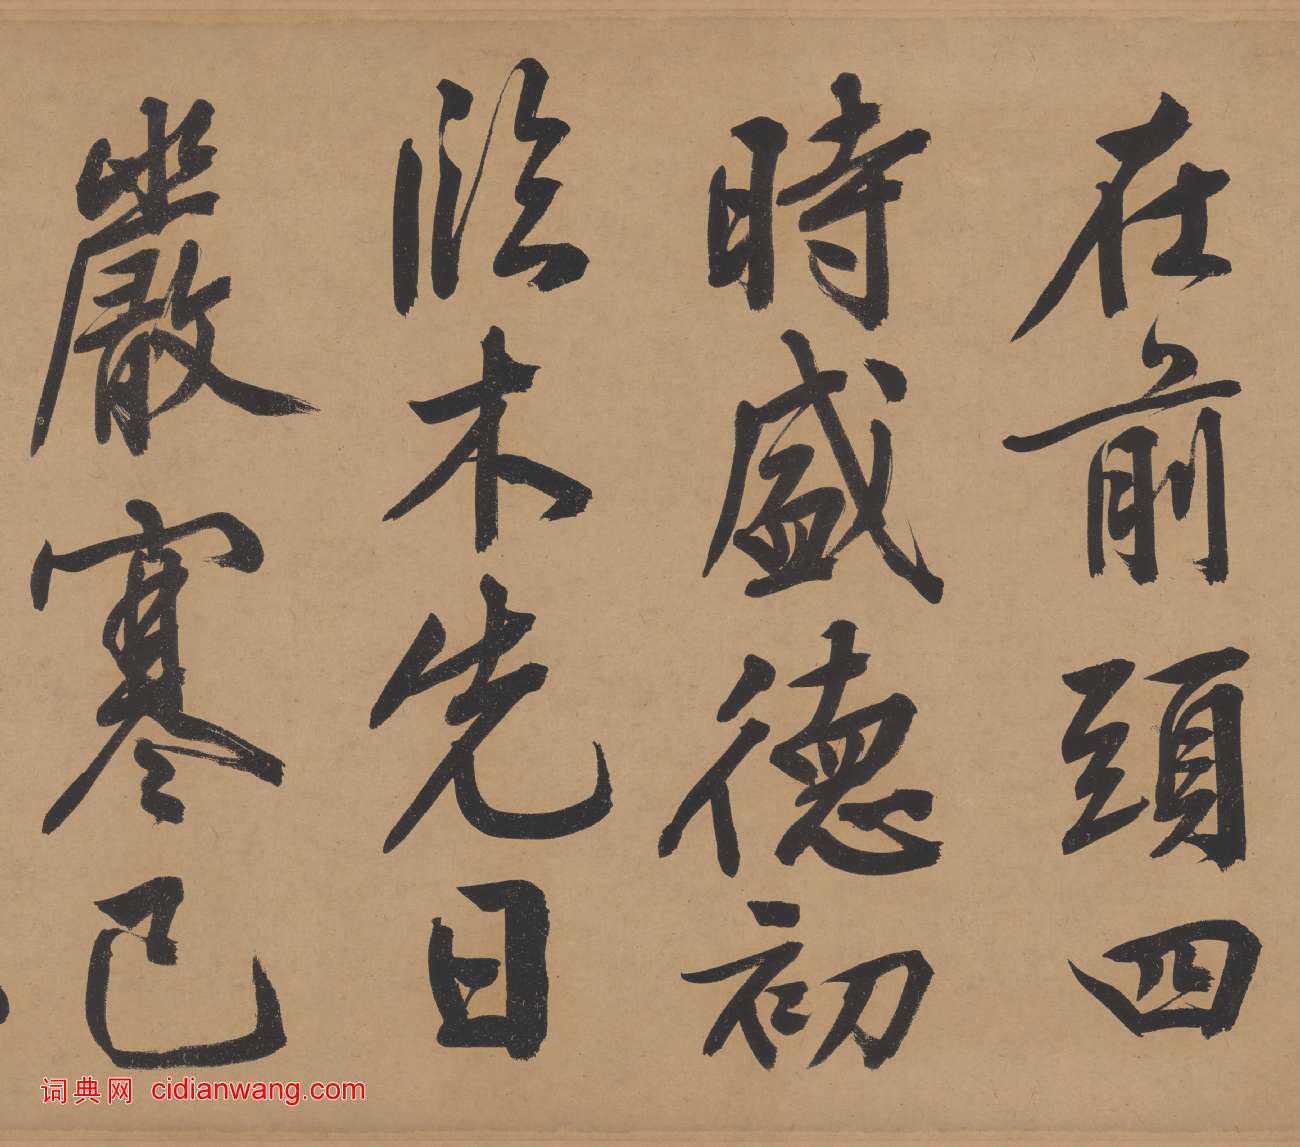 在前頭四
時盛德初
臨木先日
嚴寒已
词典网 cidianwang.com